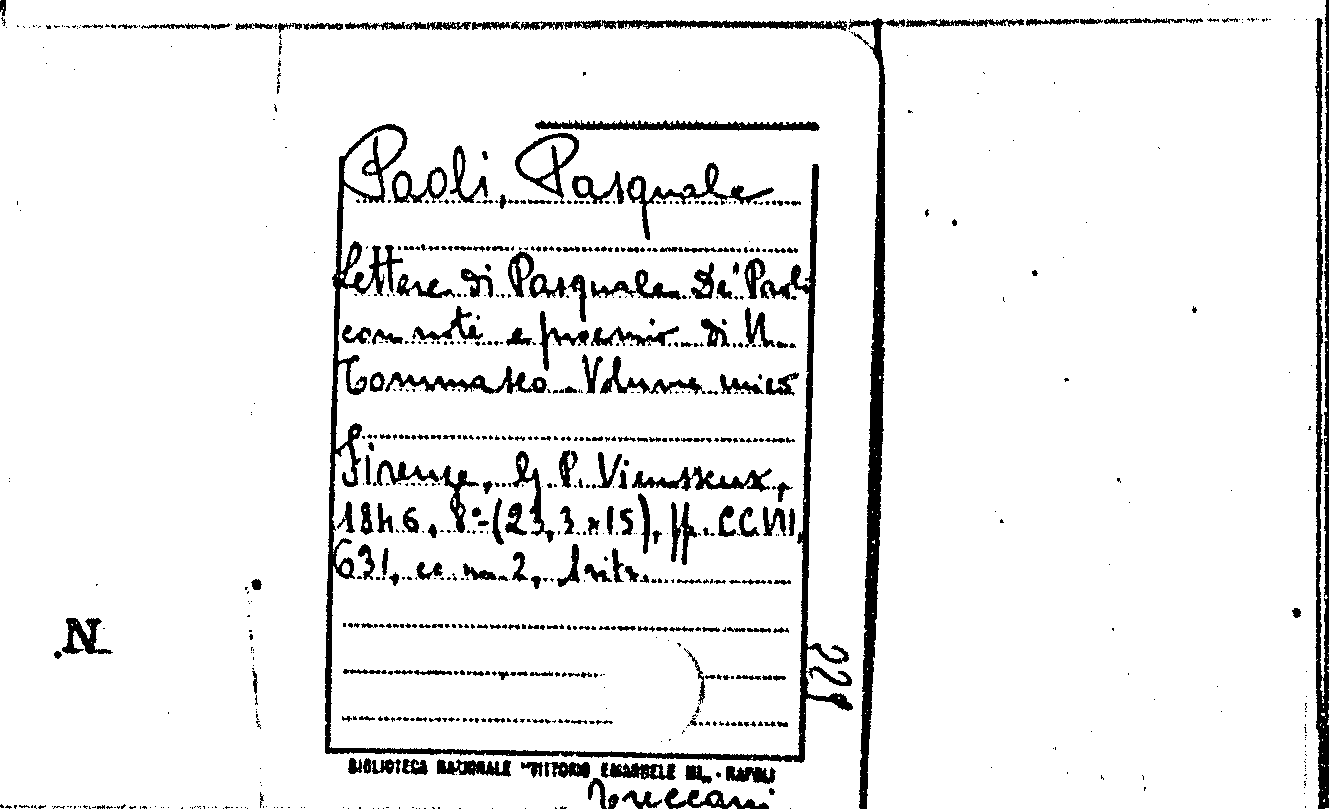 Paoli, Pasquale
Lettere di Pasquale De' Paoli
con note e proemio di N.
Tommaseo. Volume unico
Firenze, G. P. Vieusseux,
1846, 8º (23,3 x 15), pp. CCVII,
631, cc nn 2,
221
N
BIBLIOTECA NAZIONALE "VITTORIO EMANUELE III" - NAPOLI
Treccani